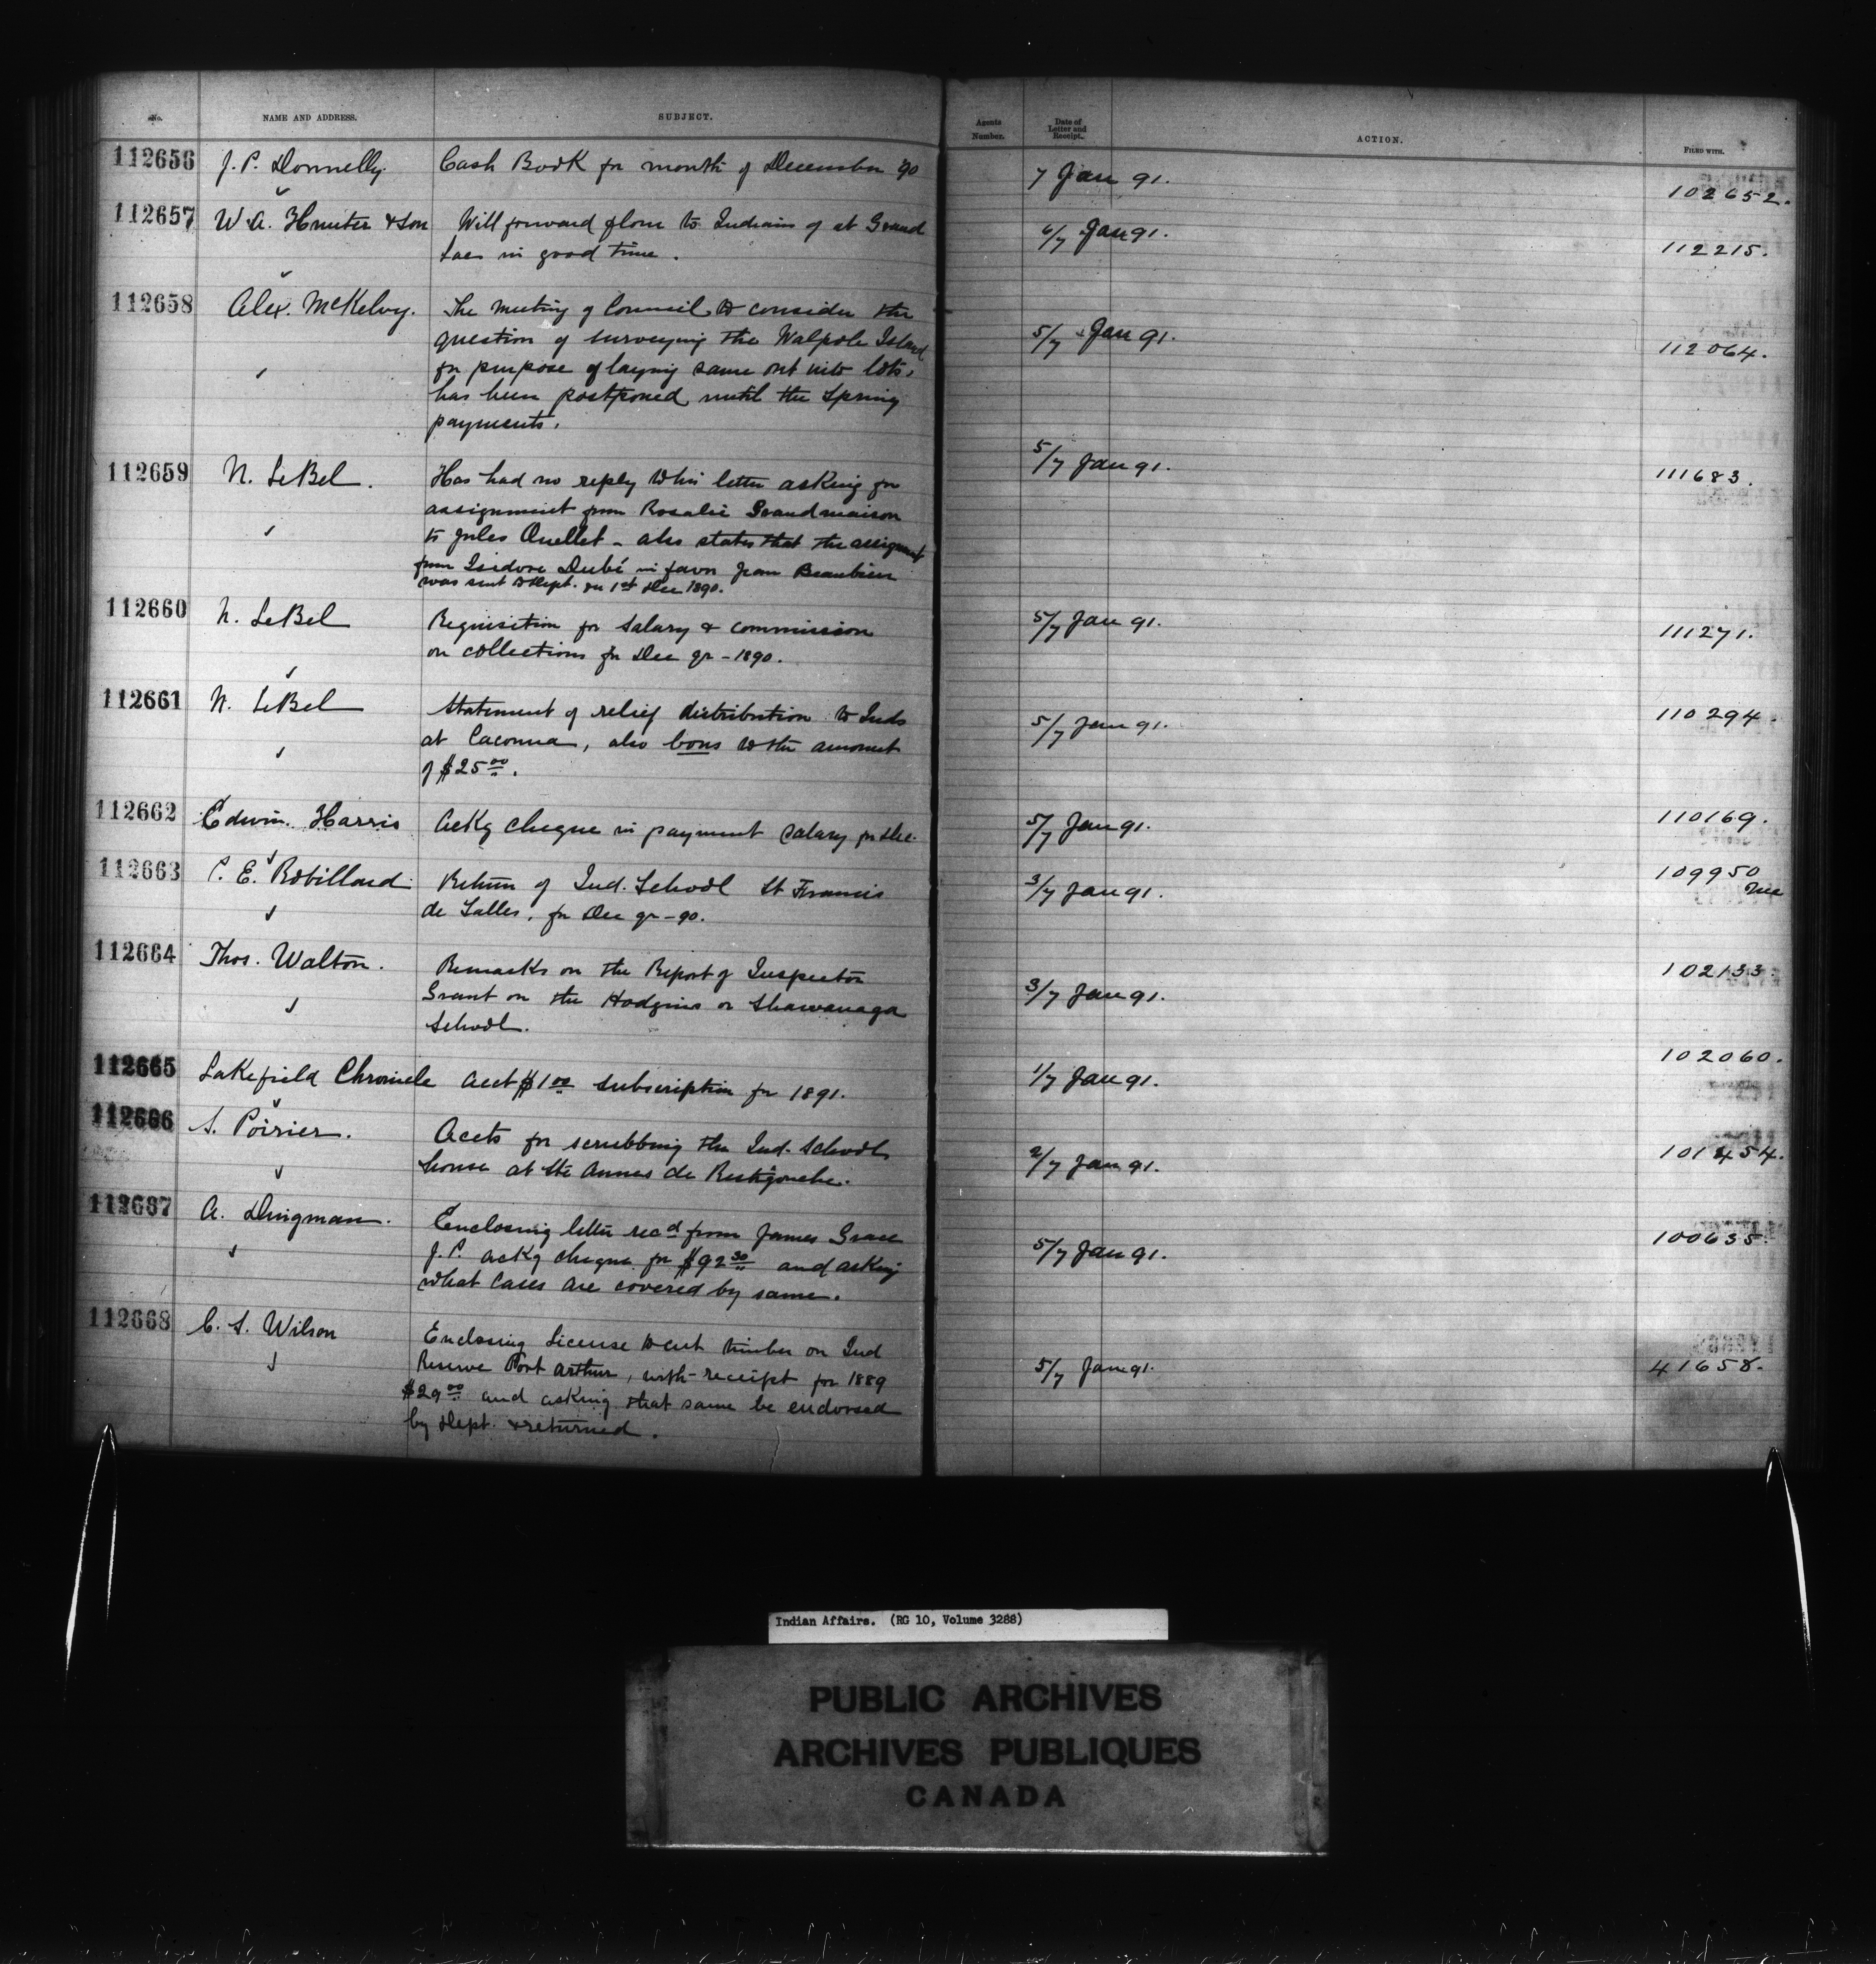 No. NAME AND ADDRESS. SUBJECT. Agents Number. Date of Letter and Receipt. ACTION. FILED WITH.
112656 J. P. Donnelly. Cash Book for month of December '90 7 Jan 91. 102652.
112657 W. A. Hunter & Son Will forward flour to Indians of at Grand 6/7 Jan 91. 112215.
Lac in good time.
112658 Alex. McKelvy. The meeting of Council to consider the 5/7 Jan 91. 112064.
question of surveying the Walpole Island
for purpose of laying same out into lots,
has been postponed until the Spring
payments.
112659 N. LeBel. Has had no reply to his letter asking for 5/7 Jan 91. 111683.
assignment from Rosalie Grandmaison
to Jules Ouellet - also states that the assignment
from Isidore Dubé in favor Jean Beaubien
was sent to Dept. on 1st Dec 1890.
112660 N. LeBel Requisition for Salary & commission 5/7 Jan 91. 111271.
on collections for Dec qr - 1890.
112661 N. LeBel Statement of relief distribution to Inds 5/7 Jan 91. 110294.
at Cacouna, also bons to the amount
of $25 00.
112662 Edwin Harris Ackg cheque in payment salary for Dec. 5/7 Jan 91. 110169.
112663 C. E. Robillard Return of Ind. School St Francis 3/7 Jan 91. 109950
de Salles, for Dec qr - 90.
112664 Thos. Walton. Remarks on the Report of Inspector 3/7 Jan 91. 102133.
Grant on the Hodgins or Shawanaga
School.
112665 Lakefield Chronicle Acct $1 00 subscription for 1891. 1/7 Jan 91. 102060.
112666 S. Poirier. Accts for scrubbing the Ind. School 2/7 Jan 91. 101454.
house at Ste Annes de Restigouche.
112667 A. Dingman. Enclosing letter recd from James Grace 5/7 Jan 91. 100635.
J.P. ackg cheque for $92 30 and asking
what cases are covered by same.
112668 C. S. Wilson Enclosing License to cut timber on Ind 5/7 Jan 91. 41658.
Reserve Port Arthur, with receipt for 1889
$29 00 and asking that same be endorsed
by Dept. & returned.
Indian Affairs. (RG 10, Volume 3288)
PUBLIC ARCHIVES
ARCHIVES PUBLIQUES
CANADA